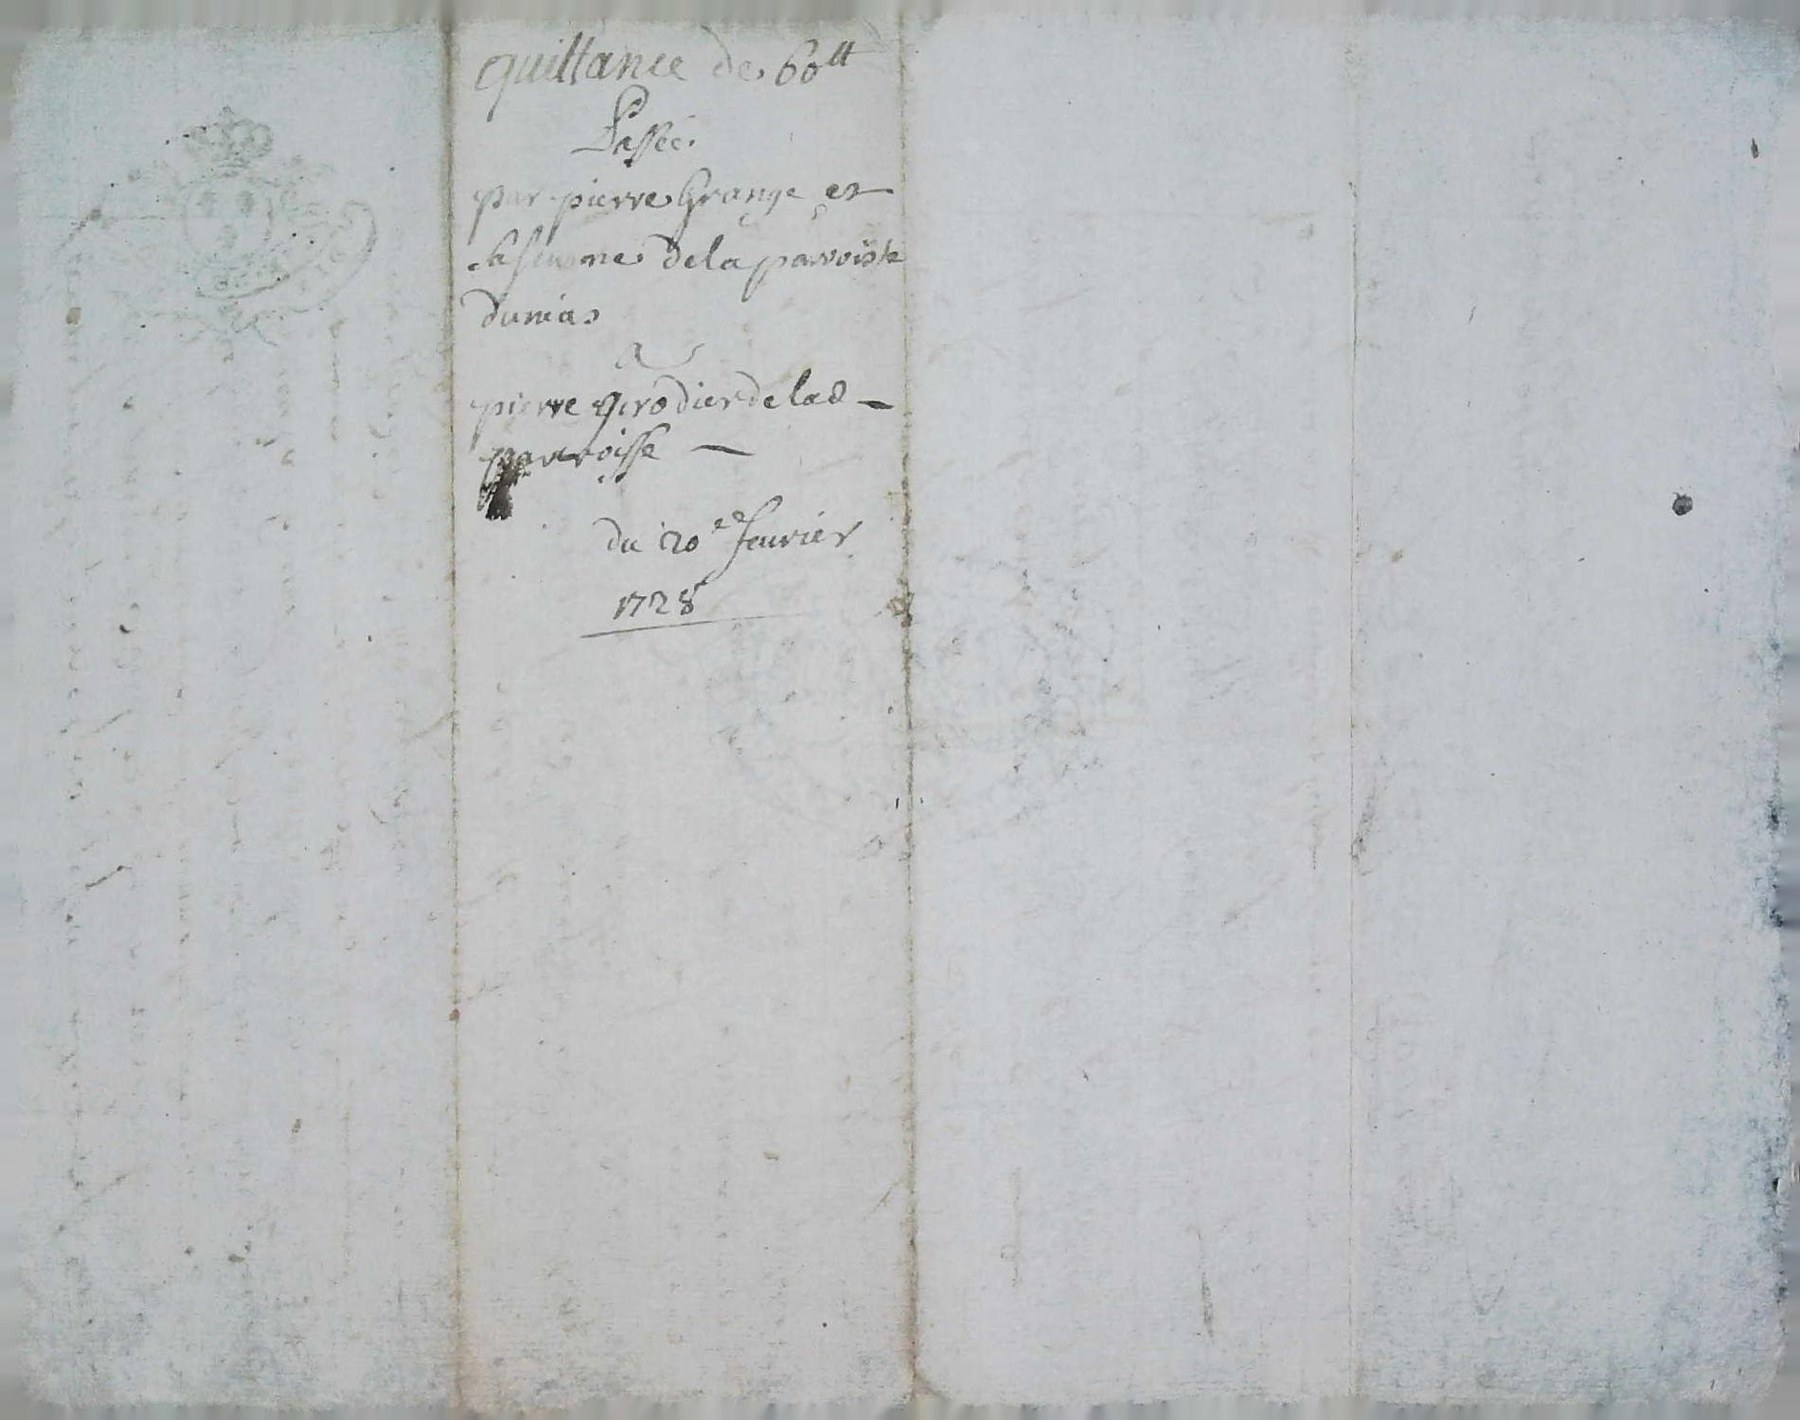 quittance de 60tt
Passée
par pierre Grange et
sa femme de la parroisse
du mas
a
pierre girodier de lad
parroisse
du 20e feurier
1728